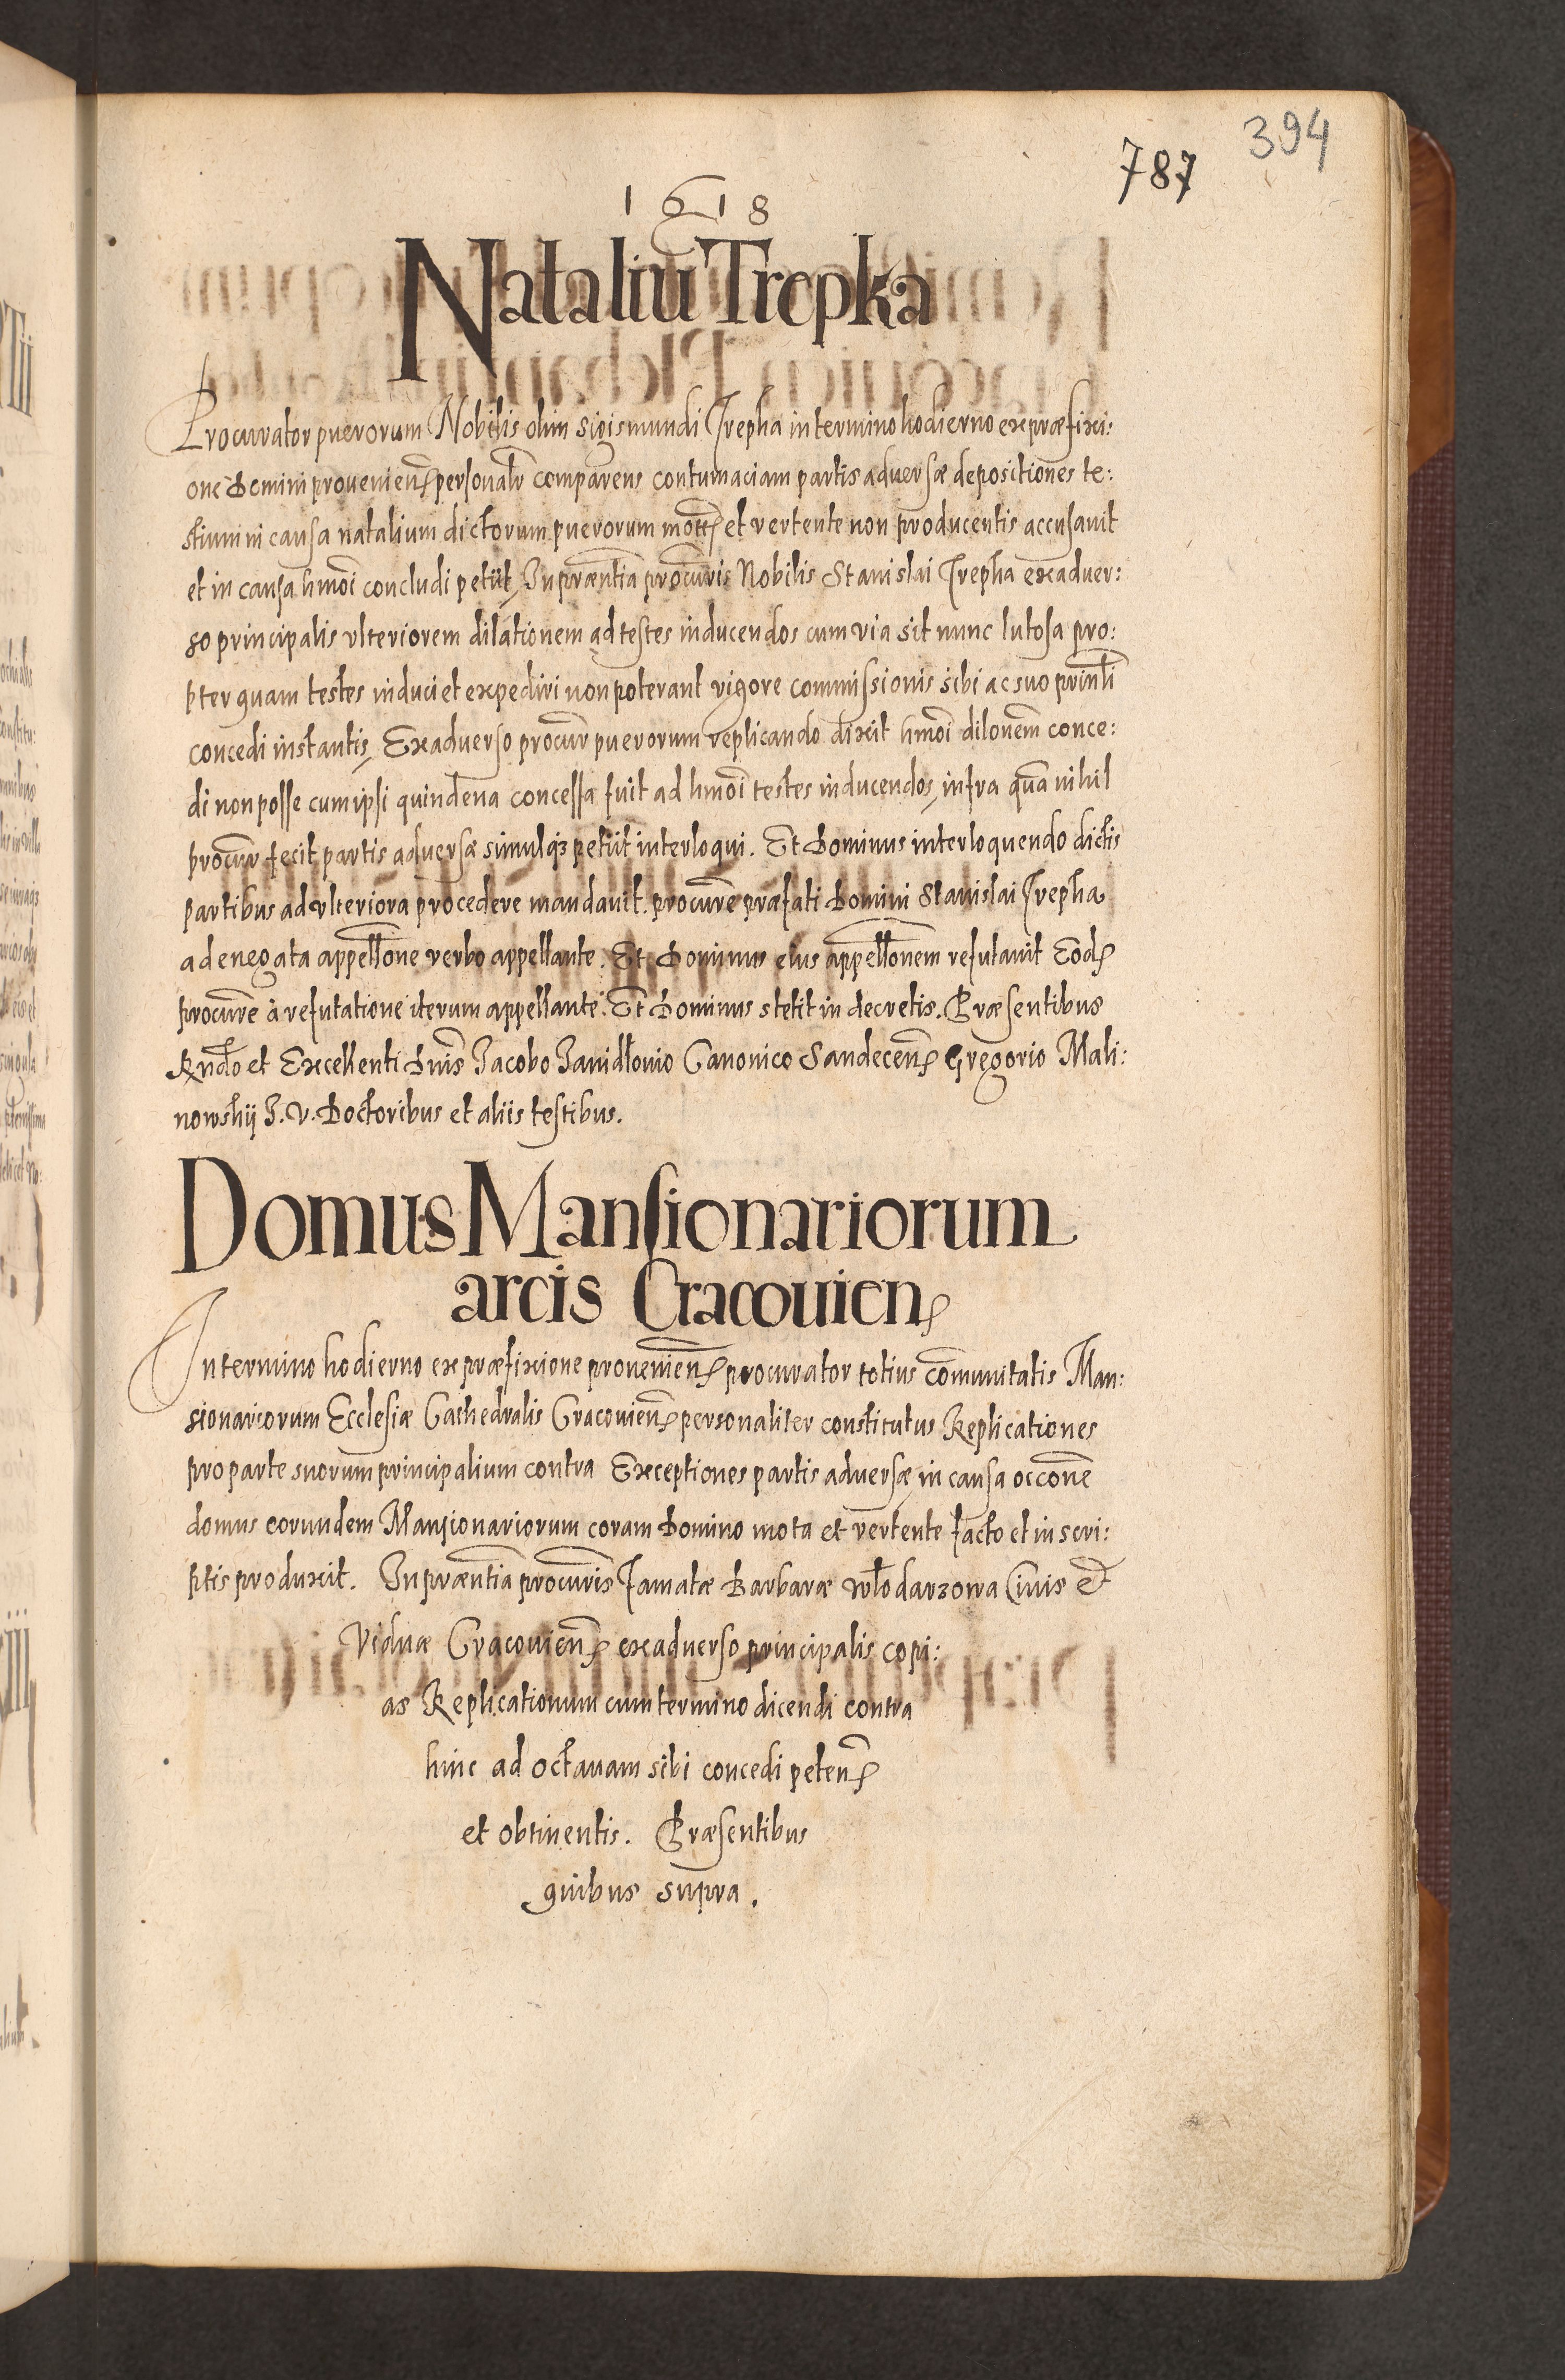 394
787
1618
Nataliū Trepka
Procurator puerorum Nobilis olim Sigismundi Trepka in termino hodierno ex præfixi:
one Domini prouenien̄ personalr̄ comparens contumaciam partis aduersæ depositiones te:
stium in causa natalium dictorum puerorum mot̄ et vertente non producentis accusauit
et in causa hmōi concludi petiit, In præntia procuris Nobilis Stanislai Trepka ex aduer:
so principalis vlteriorem dilationem ad testes inducendos cum via sit nunc lutosa pro:
pter quam testes induci et expediri non poterant vigore commissionis sibi ac suo prinli
concedi instantis, Ex aduerso procur puerorum replicando dixit hmōi dilōnem conce:
di non posse cum ipsi quindena concessa fuit ad hmōi testes inducendos, infra quā nihil
procur fecit partis aduersæ simulq₃ petiit interloqui. Et Dominus interloquendo dictis
partibus ad vlteriora procedere mandauit. procure præfati Domini Stanislai Trepka
a denegata appellōne verbo appellante. Et Dominus eius appellōnem refutauit Eōd
procure à refutatione iterum appellante. Et Dominus stetit in decretis. Præsentibus
Rndo et Excellenti Dnis Jacobo Janidlouio Canonico Sandecen̄ Gregorio Mali:
nowskij J. V. Doctoribus et aliis testibus.
Domus Mansionariorum
arcis Cracouien
In termino hodierno ex præfixione prouenien̄ procurator totius cōmunitatis Man:
sionariorum Ecclesiæ Cathedralis Cracouien̄ personaliter constitutus Replicationes
pro parte suorum principalium contra Exceptiones partis aduersæ in causa occōne
domus eorundem Mansionariorum coram Domino mota et vertente facto et in scri:
ptis produxit. In præntia procuris Famatæ Barbaræ Włodarzowa Ciuis et
Viduæ Cracouien̄ ex aduerso principalis copi:
as Replicationum cum termino dicendi contra
hinc ad octauam sibi concedi peten̄
et obtinentis. Præsentibus
quibus supra.